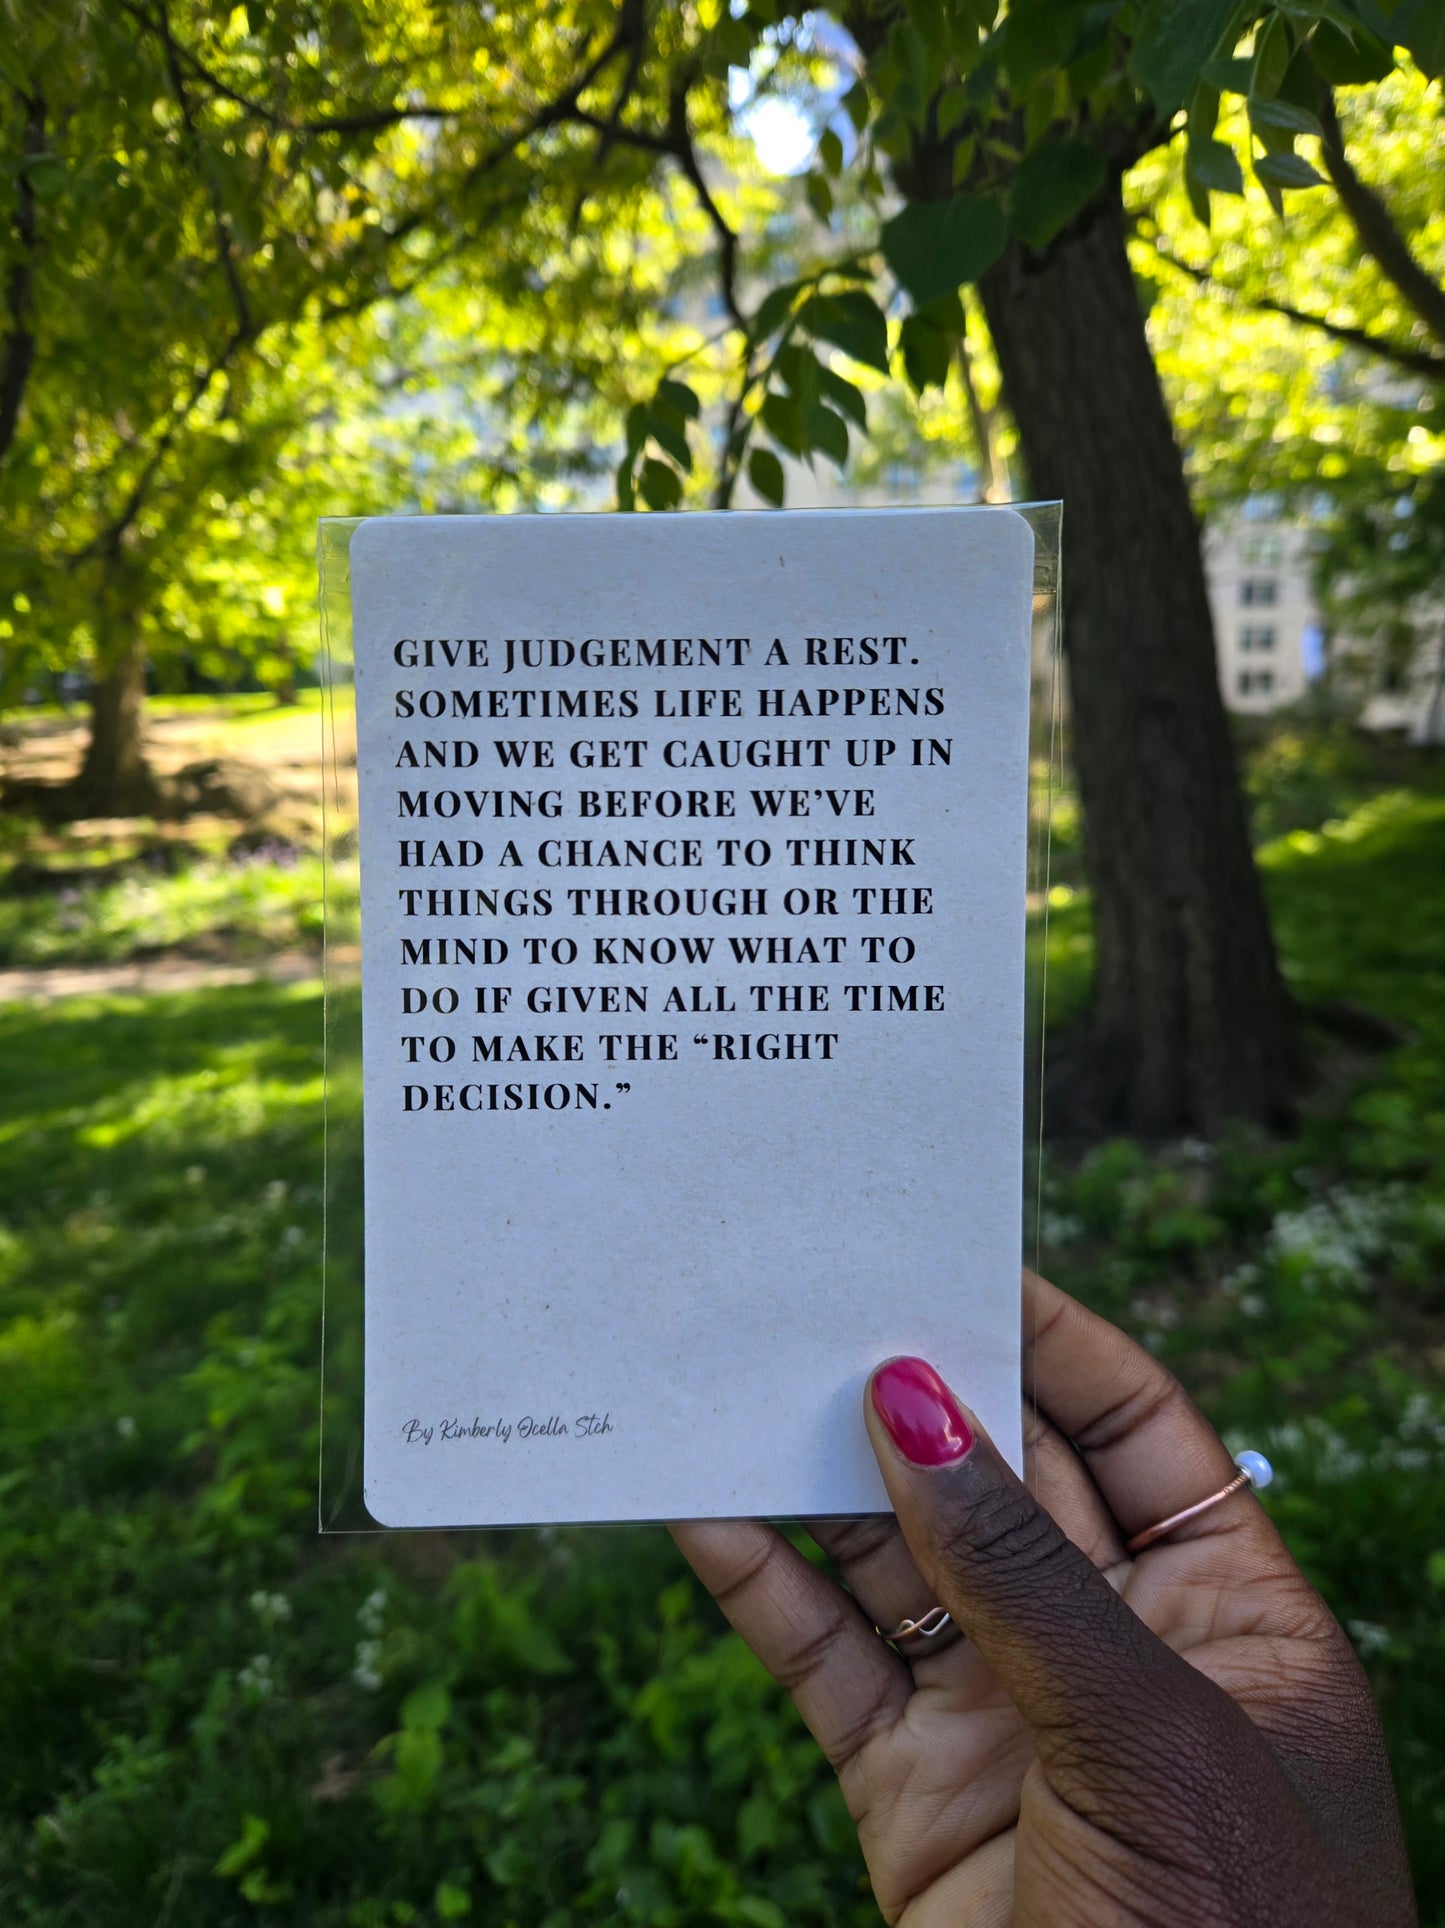 GIVE JUDGEMENT A REST.
SOMETIMES LIFE HAPPENS
AND WE GET CAUGHT UP IN
MOVING BEFORE WE’VE
HAD A CHANCE TO THINK
THINGS THROUGH OR THE
MIND TO KNOW WHAT TO
DO IF GIVEN ALL THE TIME
TO MAKE THE “RIGHT
DECISION.”
By Kimberly Ocella Stch